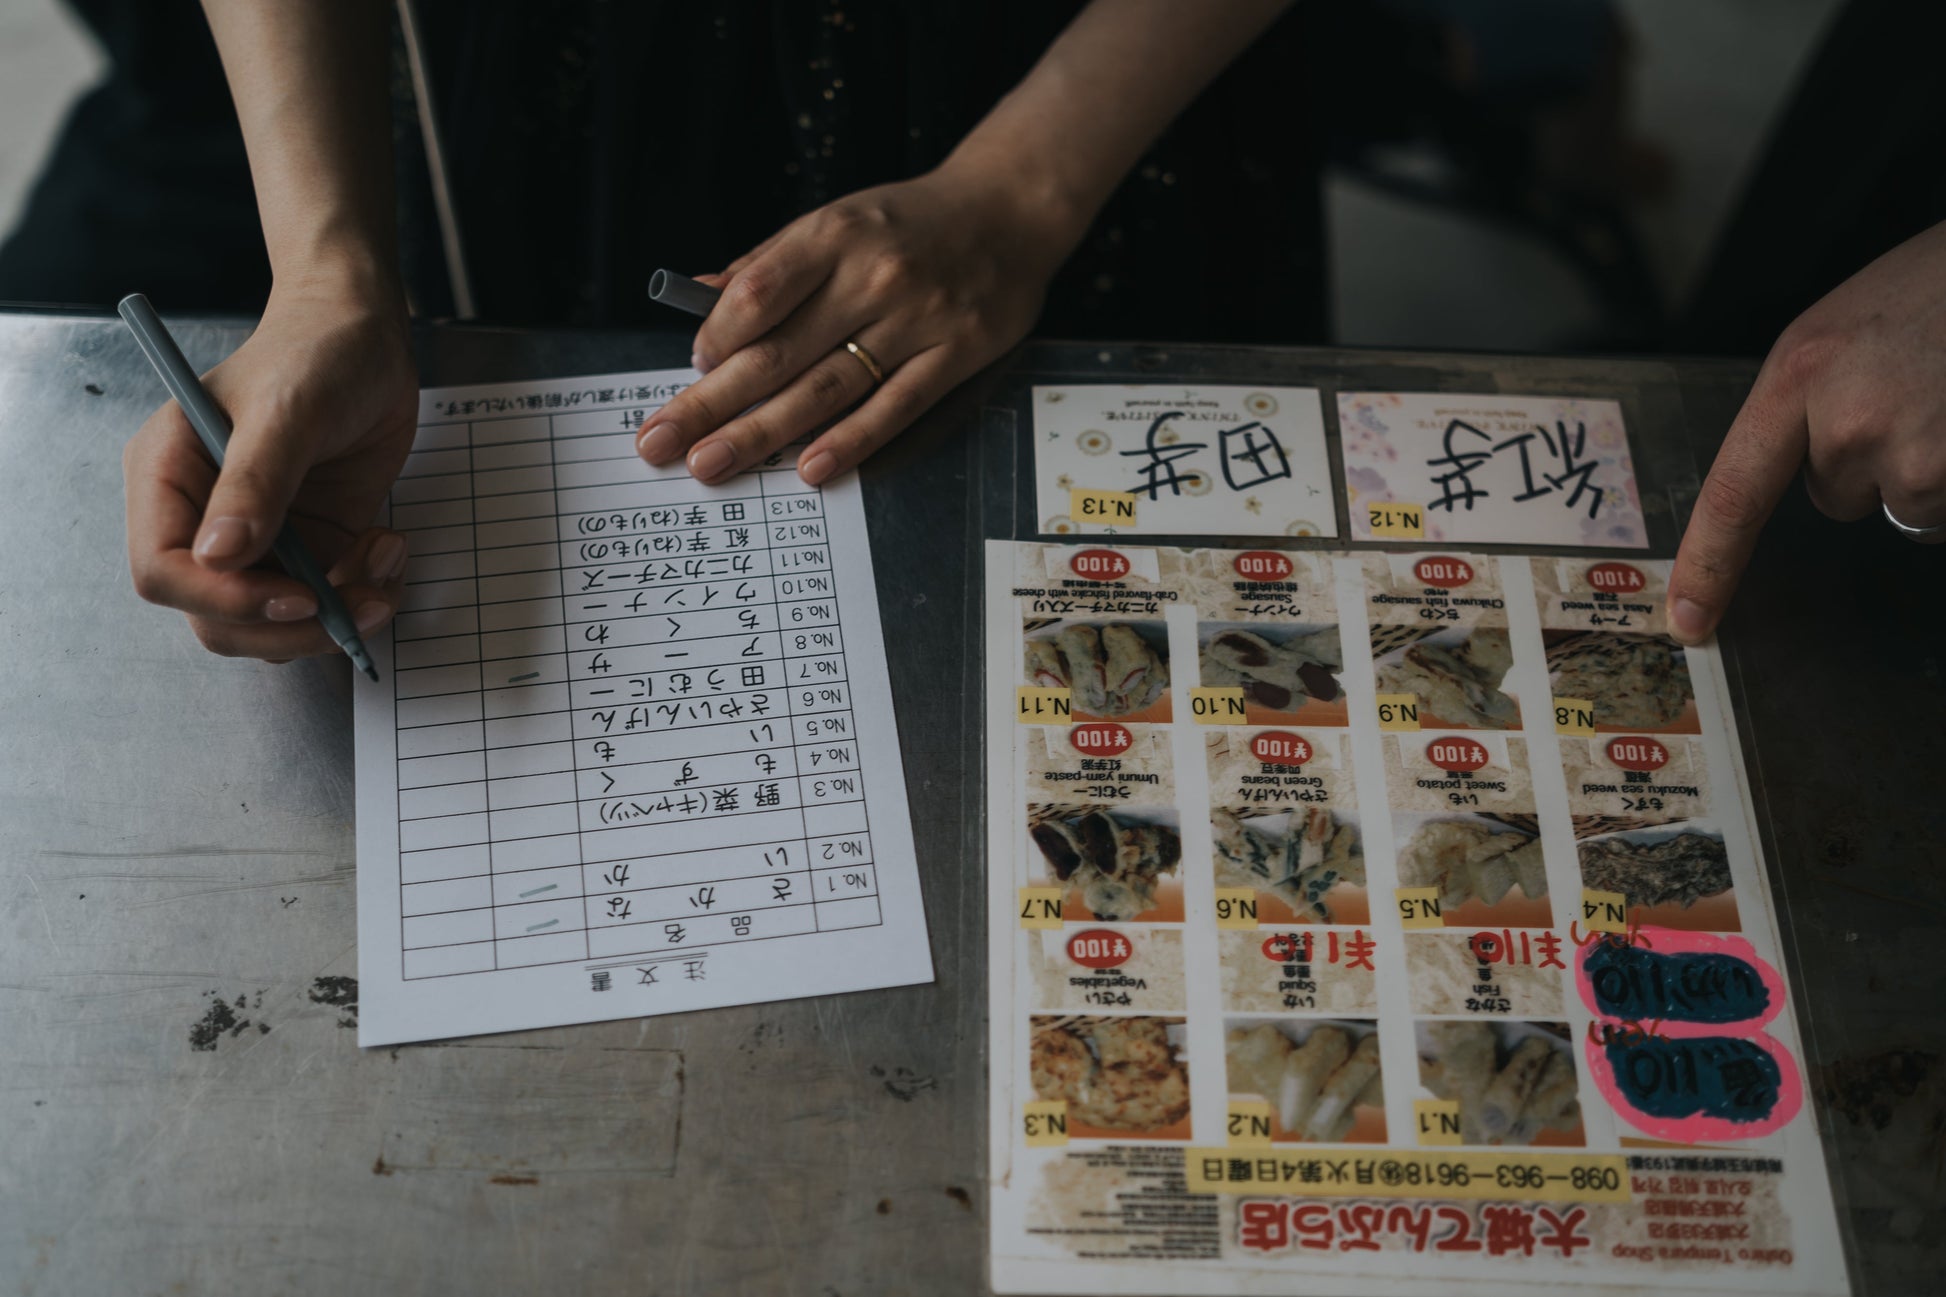 注文書
品 名
No. 1 さ か な
No. 2 い か
No. 3 野 菜(キャベツ)
No. 4 も ず く
No. 5 い も
No. 6 さやいんげん
No. 7 田うむにー
No. 8 ア ー サ
No. 9 ち く わ
No.10 ウ イ ン ナ ー
No.11 カニカマチーズ
No.12 紅 芋(ねりもの)
No.13 田 芋(ねりもの)
計
より受け渡しが前後いたします。
Oshiro Tempura Shop
大城てんぷら店
098-963-9618㊡月火第4日曜日
魚 110
いか 110
N.1
さかな
Fish
¥110
N.2
いか
Squid
¥110
N.3
やさい
Vegetables
¥100
N.4
もずく
Mozuku sea weed
¥100
N.5
いも
Sweet potato
¥100
N.6
さやいんげん
Green beans
¥100
N.7
うむにー
Umuni yam-paste
¥100
N.8
アーサ
Aasa sea weed
¥100
N.9
ちくわ
Chikuwa fish sausage
¥100
N.10
ウィンナー
Sausage
¥100
N.11
カニカマチーズ入り
Crab-flavored fishcake with cheese
¥100
N.12
紅芋
N.13
田芋